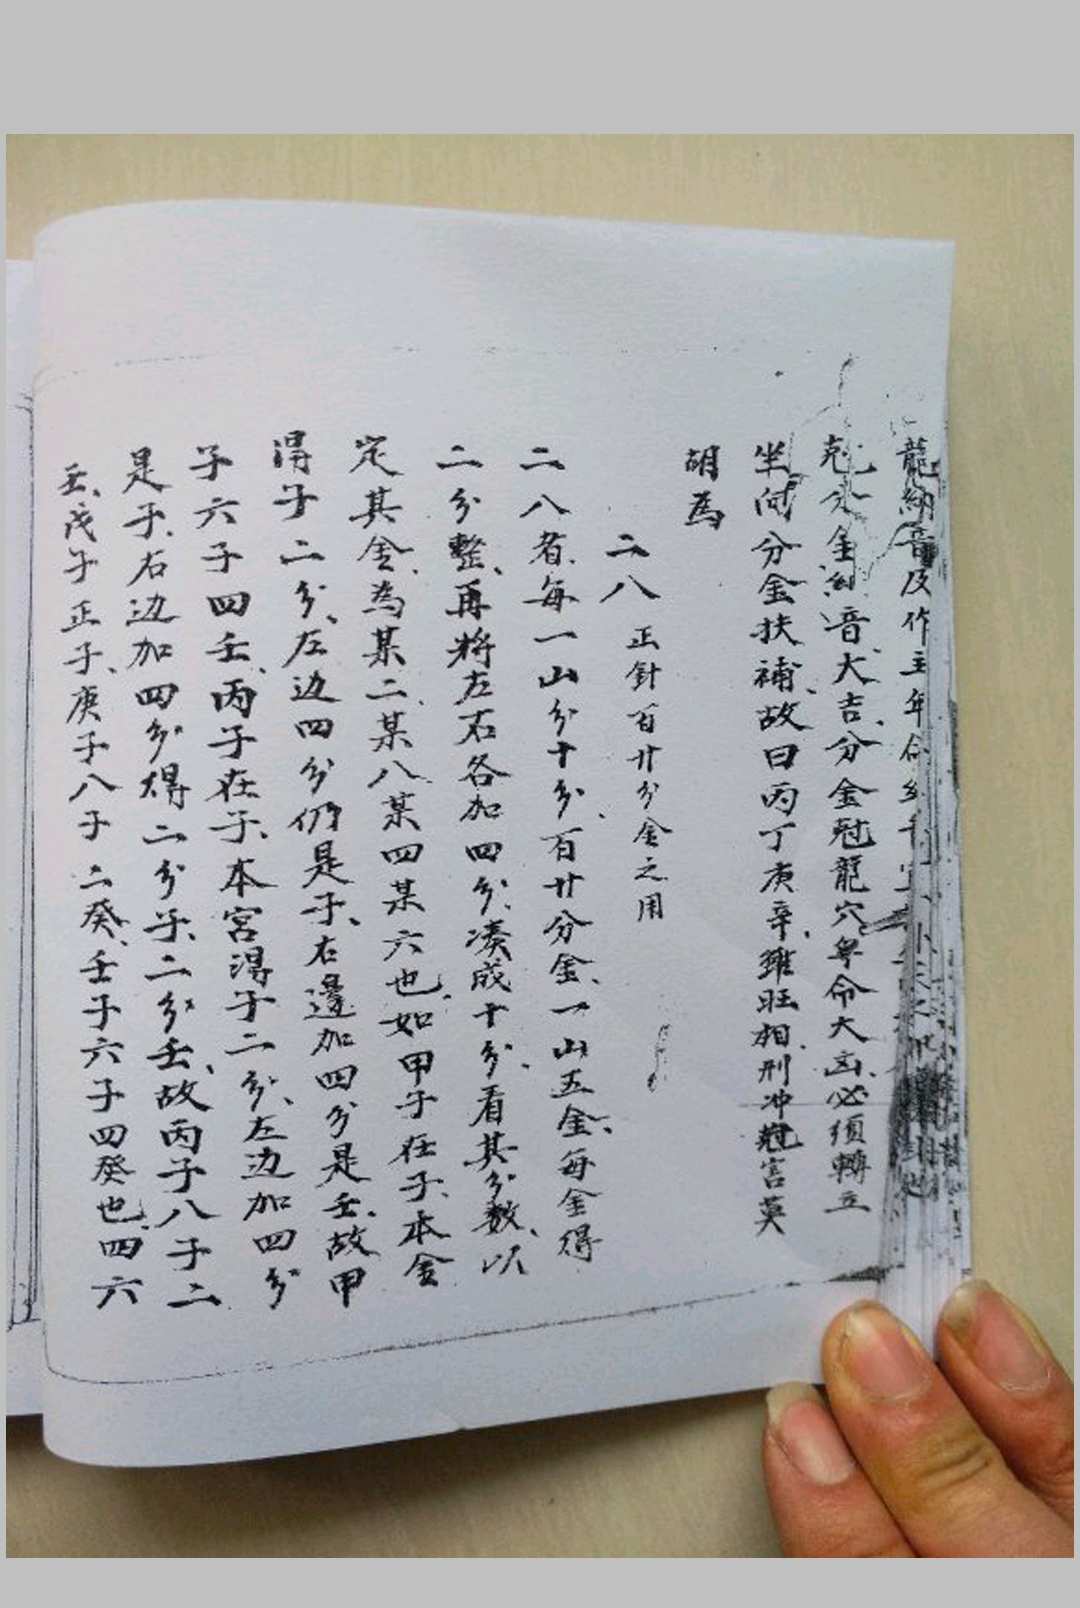 龍納音及作主年命納音
尅分金納音大吉分金尅龍穴與命大凶必須轉立
坐向分金扶補故曰丙丁庚辛雖旺相刑冲尅害莫
胡為
二八 正針百廿分金之用
二八者每一山分十分百廿分金一山五金每金得
二分整再將左右各加四分湊成十分看其分数以
定其金為某二某八某四某六也如甲子在子本金
淂子二分左边四分仍是子右邊加四分是壬故甲
子六子四壬丙子在子本宮淂子二分左边加四分
是子右边加四分得二分子二分壬故丙子八子二
壬戊子正子庚子八子二癸壬子六子四癸也四六